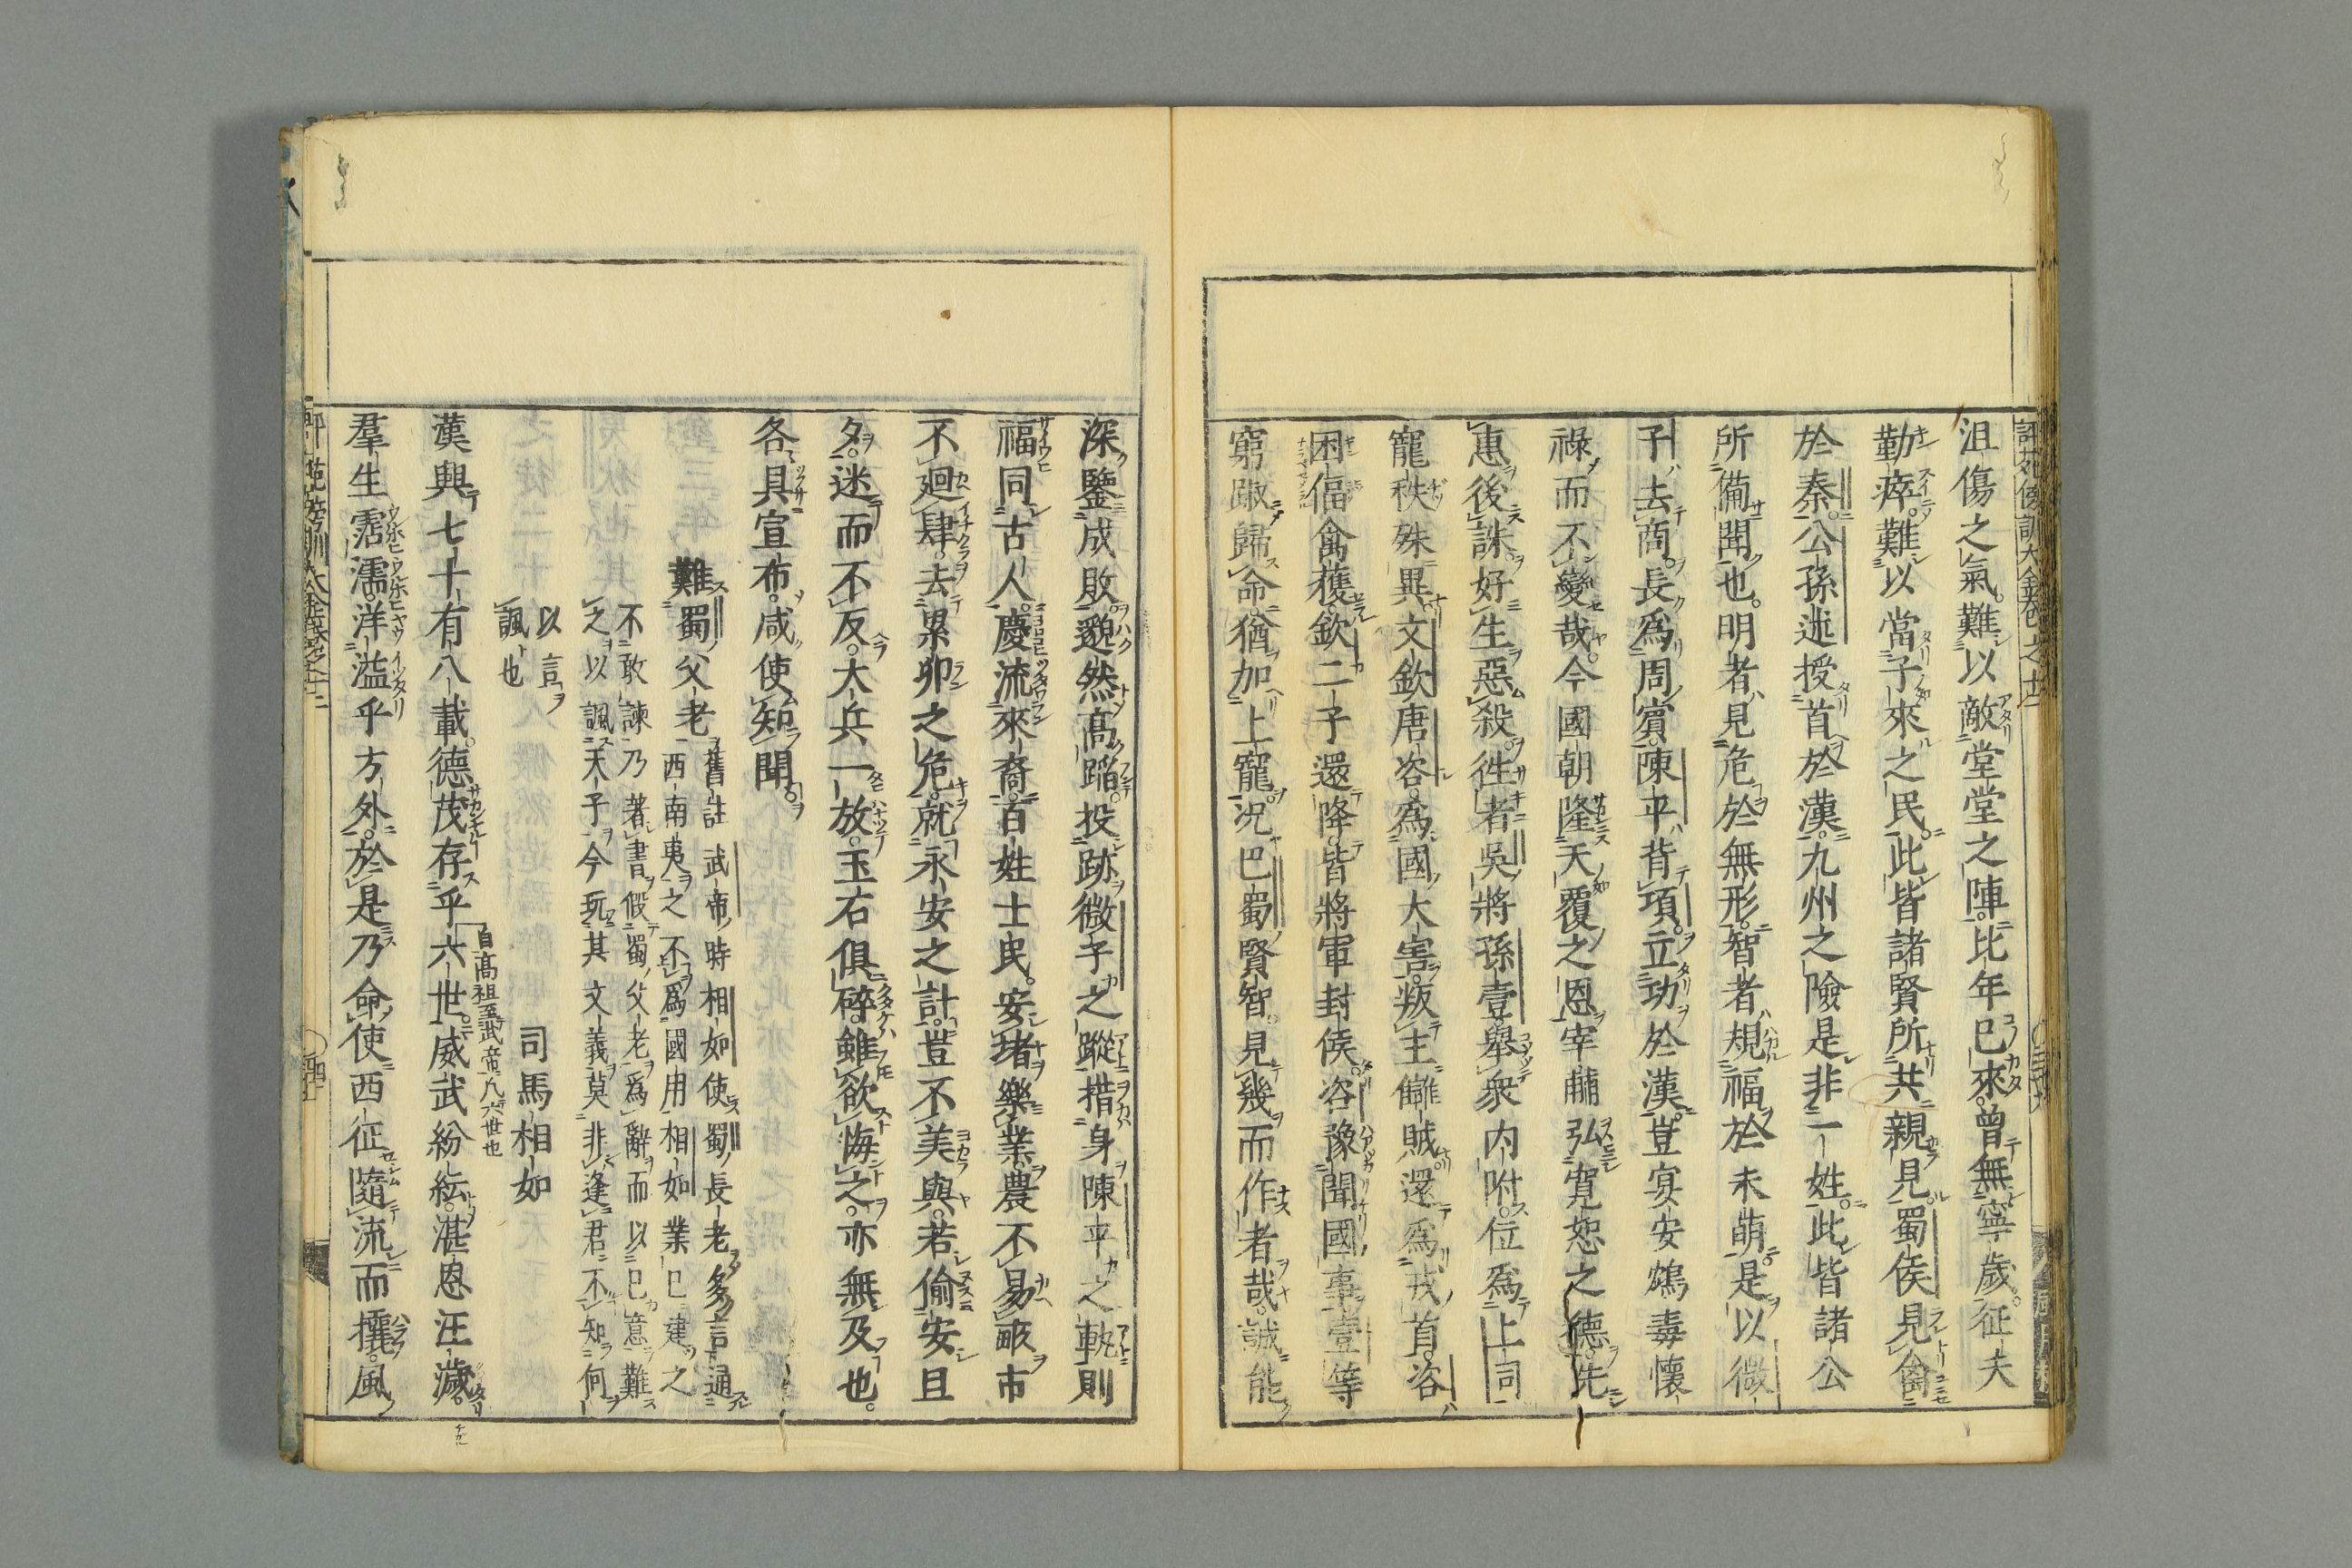 沮傷之氣。難以敵堂堂之陣。比年已來。曾無寧歲。征夫
勤瘁。難以當子來之民。此皆諸賢所共親見。蜀侯見禽
於秦。公孫述授首於漢。九州之險是非一姓。此皆諸公
所備聞也。明者見危於無形。智者規福於未萌。是以微
子去商。長爲周賓。陳平背項。立功於漢。豈宴安鴆毒懷
祿而不變哉。今國朝隆天覆之恩。宰輔弘寬恕之德。先
惠後誅。好生惡殺。徃者吳將孫壹舉衆内附。位爲上司
寵秩殊異。文欽唐咨。爲國大害。叛主讎賊。還爲戎首。咨
困偪禽獲。欽二子還降。皆將軍封侯。咨豫聞國事。壹等
窮踧歸命。猶加上寵。況巴蜀賢智。見幾而作者哉。誠能
深鑒成敗。邈然高蹈。投跡微子之蹤。措身陳平之軌。則
福同古人。慶流來裔。百姓士民。安堵樂業。農不易畝。市
不迴肆。去累卵之危。就永安之計。豈不美與。若偷安且
夕。迷而不反。大兵一放。玉石俱碎。雖欲悔之。亦無及也。
各具宣布。咸使知聞。
難蜀父老 舊註 武帝時相如使蜀長老多言通
西南夷之不爲國用相如業已建之
不敢諫乃著書假蜀父老爲辭而以己意難
之以諷天子今玩其文義莫非逢君不知何
以言
諷也
司馬相如
漢興七十有八載。德茂存乎六世。自高祖至武帝凡六世也 威武紛紜。湛恩汪濊。
羣生霑濡。洋溢乎方外。於是乃命使西征。隨流而攘。風